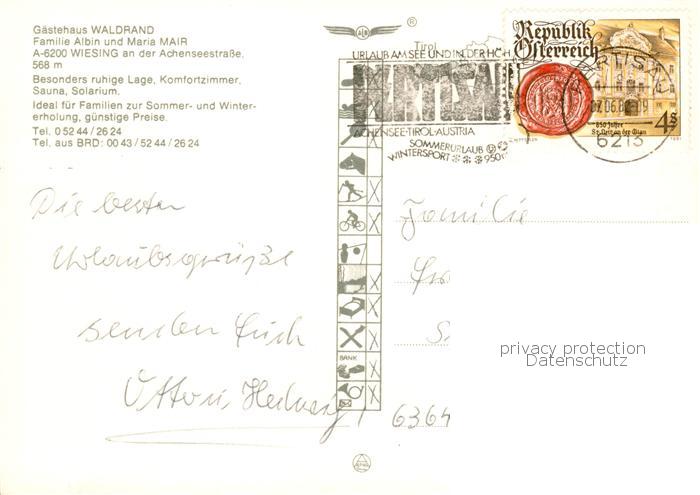 Gästehaus WALDRAND
Familie Albin und Maria MAIR
A-6200 WIESING an der Achenseestraße.
568 m
Besonders ruhige Lage, Komfortzimmer,
Sauna, Solarium.
Ideal für Familien zur Sommer- und Winter-
erholung, günstige Preise.
Tel. 0 52 44 / 26 24
Tel. aus BRD: 00 43 / 52 44 / 26 24
®
Tirol
URLAUB AM SEE UND IN DER HÖH
PERTISAU
ACHENSEE-TIROL-AUSTRIA
SOMMERURLAUB
WINTERSPORT 950
Republik
Österreich
850 Jahre
St. Veit an der Glan
4s
1981
PERTISAU
6213
BANK
Die besten
Urlaubsgrüße
senden Euch
Otto u. Hedwig
Familie
6364
privacy protection
Datenschutz